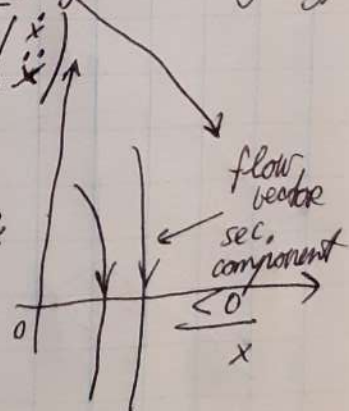 ẋ
ẍ
flow
vector
sec.
component
< 0
0
x